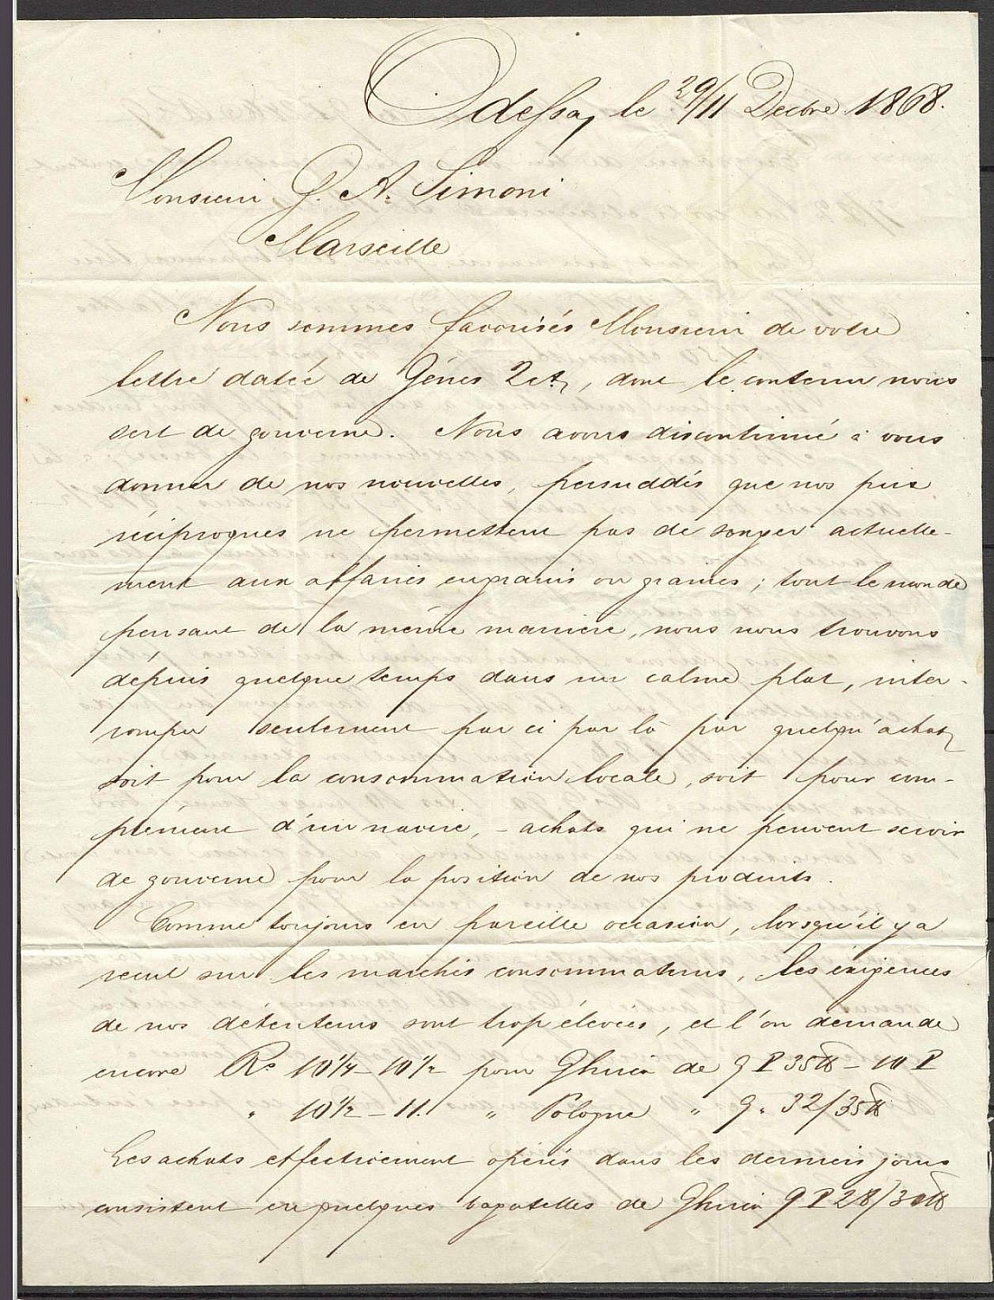 Odessa, le 29/11 Decbre 1868.
Monsieur G. A. Simoni
Marseille
Nous sommes favorisés Monsieur de votre
lettre datée de Gênes 2 ct, dont le contenu nous
sert de gouverne. Nous avons discontinué à vous
donner de nos nouvelles, persuadés que nos prix
réciproques ne permettent pas de songer actuelle-
ment aux affaires en grains ou graines; tout le monde
pensant de la même manière, nous nous trouvons
dépuis quelque temps dans un calme plat, inter-
rompu seulement par ci par là par quelqu'achat,
soit pour la consommation locale, soit pour com-
plement d'un navire, - achats qui ne peuvent servir
de gouverne pour la position de nos produits.
Comme toujours en pareille occasion, lorsqu'il y a
recul sur les marchés consommateurs, les exigences
de nos détenteurs sont trop élevées, et l'on demande
encore Ro 10¼ - 10½ pour Ghirca de 9 P 35 ℔ - 10 P
" 10½ - 11. " Pologne " 9 " 32/35 ℔
Les achats effectivement opérés dans les derniers jours
consistent en quelques bagatelles de Ghirca 9 P 28/30 ℔